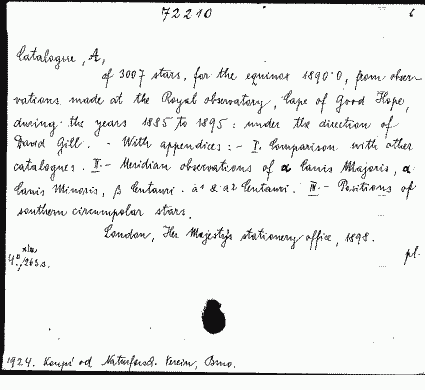 72210
6
Catalogue, A,
of 3007 stars, for the equinox 1890·0, from obser-
vations made at the Royal observatory, Cape of Good Hope,
during the years 1885 to 1895: under the direction of
David Gill. - With appendices: - I. Comparison with other
catalogues. II. - Meridian observations of α Canis Majoris, α
Canis Minoris, β Centauri. α1 & α2 Centauri. III. - Positions of
southern circumpolar stars.
London, Her Majesty's stationery office, 1898.
pl.
4° /263 s.
1924. Koupí od Naturforsch. Verein, Brno.